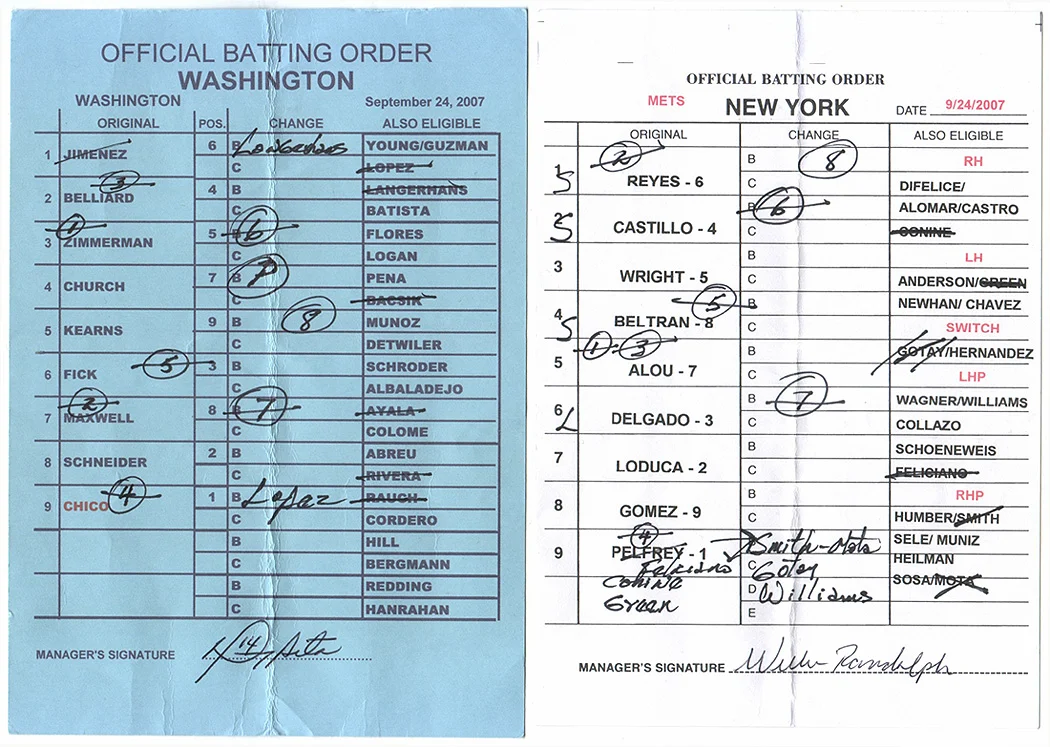 OFFICIAL BATTING ORDER
WASHINGTON
WASHINGTON September 24, 2007
ORIGINAL POS. CHANGE ALSO ELIGIBLE
1 JIMENEZ 6 B Langerhans YOUNG/GUZMAN
C LOPEZ
3
2 BELLIARD 4 B LANGERHANS
C BATISTA
1
3 ZIMMERMAN 5 B 6 FLORES
C LOGAN
4 CHURCH 7 B 7 PENA
C BACSIK
5 KEARNS 9 B 8 MUNOZ
C DETWILER
6 FICK 5 3 B SCHRODER
C ALBALADEJO
2
7 MAXWELL 8 B 7 AYALA
C COLOME
8 SCHNEIDER 2 B ABREU
C RIVERA
9 CHICO 4 1 B Lopez RAUCH
C CORDERO
B HILL
C BERGMANN
B REDDING
C HANRAHAN
MANAGER'S SIGNATURE 14
OFFICIAL BATTING ORDER
METS NEW YORK DATE 9/24/2007
ORIGINAL CHANGE ALSO ELIGIBLE
2
1 S REYES - 6 B 8 RH
C DIFELICE/
2 S CASTILLO - 4 B 6 ALOMAR/CASTRO
C CONINE
3 WRIGHT - 5 B LH
C ANDERSON/GREEN
5
4 S BELTRAN - 8 B NEWHAN/ CHAVEZ
C SWITCH
1 3
5 ALOU - 7 B GOTAY/HERNANDEZ
C LHP
6 L DELGADO - 3 B 7 WAGNER/WILLIAMS
C COLLAZO
7 LODUCA - 2 B SCHOENEWEIS
C FELICIANO
8 GOMEZ - 9 B RHP
C HUMBER/SMITH
4
9 PELFREY - 1 Smith - Mota SELE/ MUNIZ
Feliciano C Gotay HEILMAN
Conine D Williams SOSA/MOTA
Green E
MANAGER'S SIGNATURE Willie Randolph